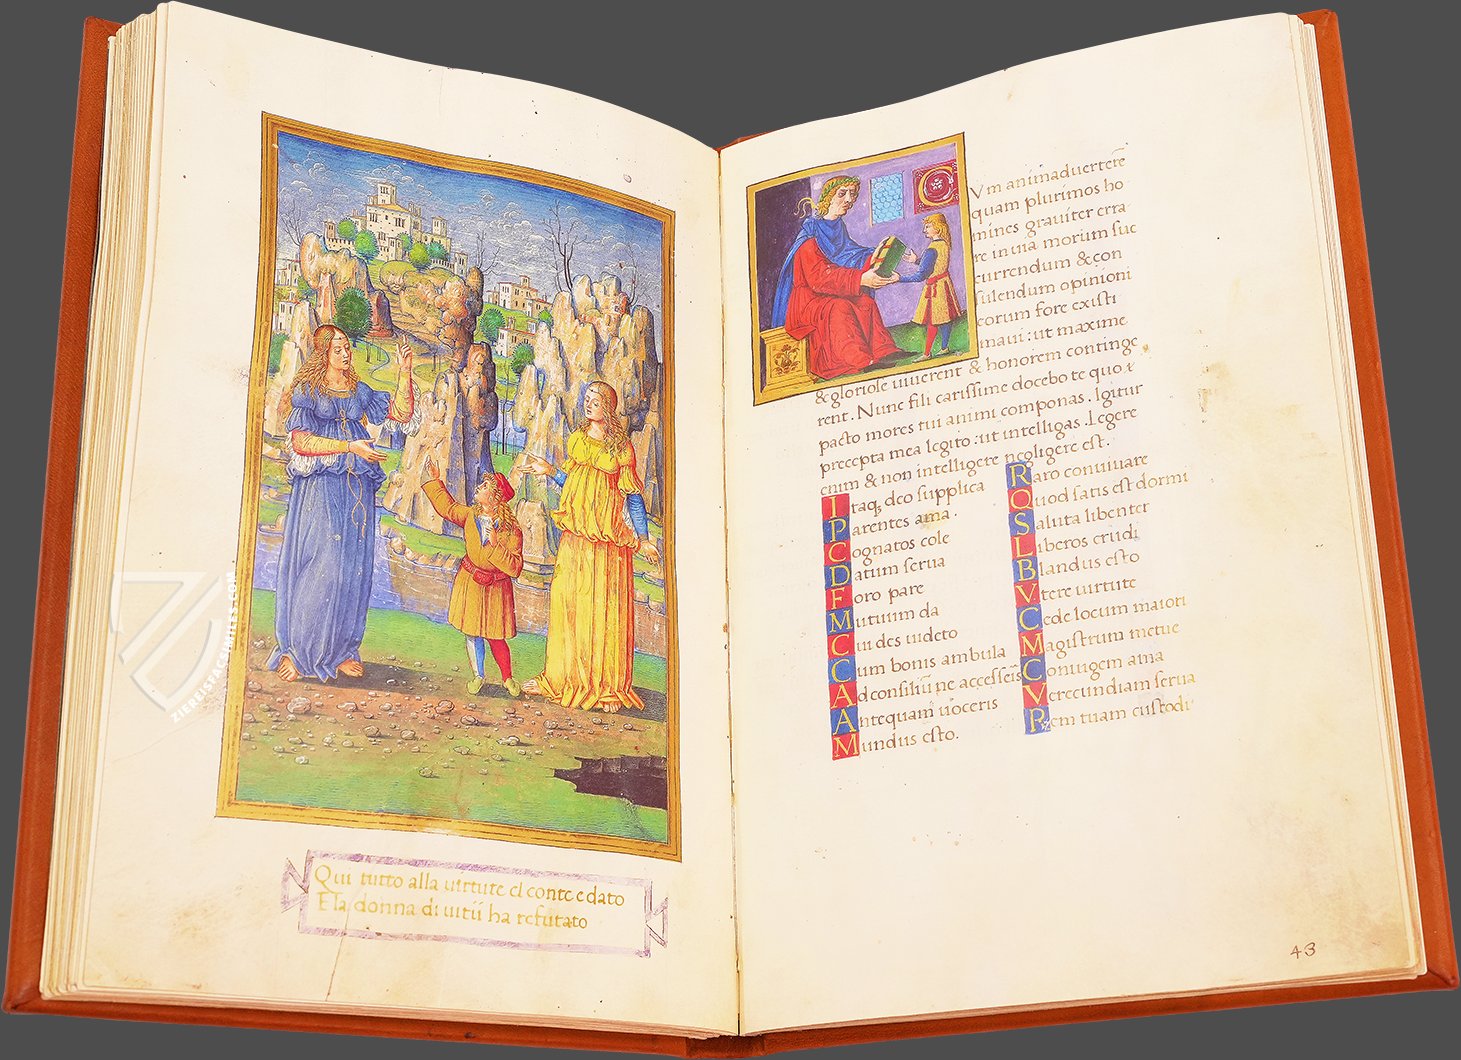 Qui tutto alla uirtute el conte e dato
E la donna di uitii ha refutato
ZIEREISFACSIMILES.COM
C
Vm animaduerterē
quam plurimos ho
mines grauiter erra
re in uia morum suc
currendum & con
sulendum opinioni
eorum fore existi
maui: ut maxime
& gloriose uiuerent & honorem continge
rent. Nunc fili carissime docebo te quo
pacto mores tui animi componas. Igitur
precepta mea legito: ut intelligas. Legere
enim & non intelligere negligere est.
Itaq; deo supplica
Parentes ama.
Cognatos cole
Datum serua
Foro pare
Mutuum da
Cui des uideto
Cum bonis ambula
Ad consiliū ne accesseis
Antequam uoceris
Mundus esto.
Raro conuiuare
Quod satis est dormi
Saluta libenter
Liberos erudi
Blandus esto
Vtere uirtute
Cede locum maiori
Magistrum metue
Coniugem ama
Verecundiam serua
Rem tuam custodi
43